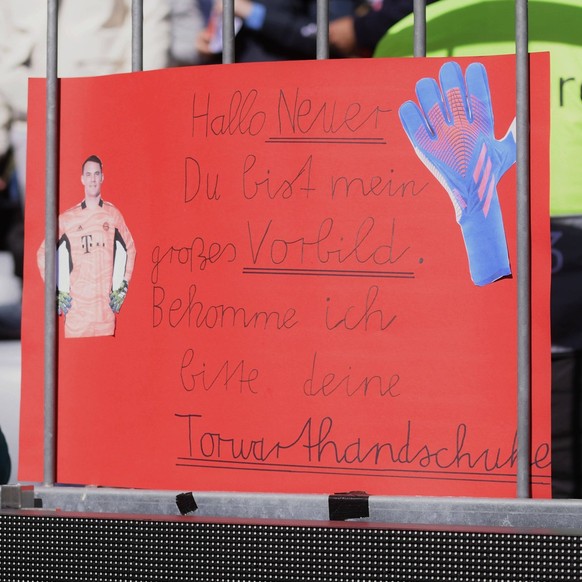 Hallo Neuer
Du bist mein
großes Vorbild.
Bekomme ich
bitte deine
Torwarthandschuhe